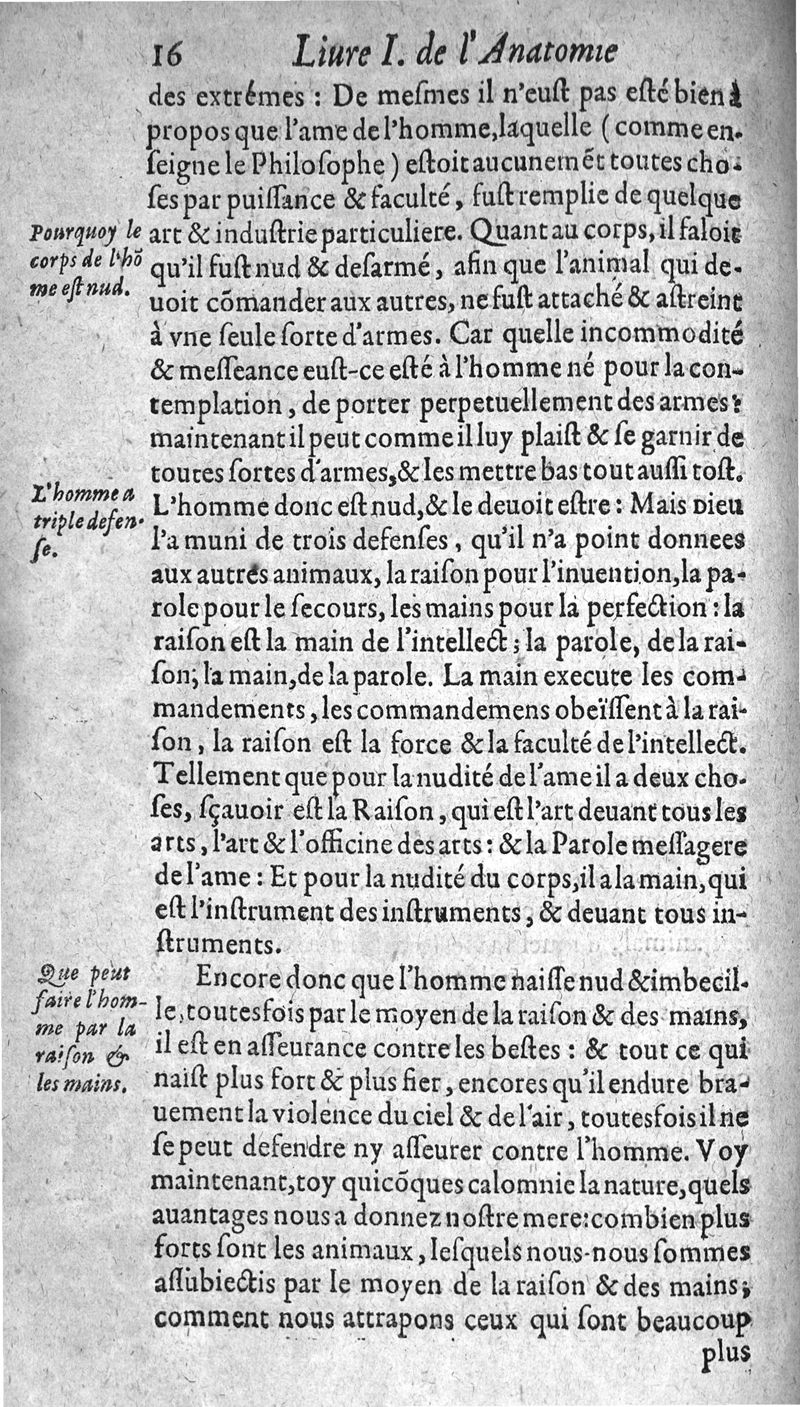 16 Liure I. de l'Anatomie
des extrémes : De meſmes il n'euſt pas eſté bien à
propos que l'ame de l'homme, laquelle ( comme en-
ſeigne le Philoſophe ) eſtoit aucunemẽt toutes cho-
ſes par puiſſance & faculté, fuſt remplie de quelque
Pourquoy le
corps de l'hõ
me eſt nud.
art & induſtrie particuliere. Quant au corps, il faloit
qu'il fuſt nud & deſarmé, afin que l'animal qui de-
uoit cõmander aux autres, ne fuſt attaché & aſtreint
à vne ſeule ſorte d'armes. Car quelle incommodité
& meſſeance euſt-ce eſté à l'homme né pour la con-
templation, de porter perpetuellement des armes?
maintenant il peut comme il luy plaiſt & ſe garnir de
toutes ſortes d'armes, & les mettre bas tout auſſi toſt.
L'homme a
triple defen-
ſe.
L'homme donc eſt nud, & le deuoit eſtre : Mais Dieu
l'a muni de trois defenſes, qu'il n'a point donnees
aux autres animaux, la raiſon pour l'inuention, la pa-
role pour le ſecours, les mains pour la perfection : la
raiſon eſt la main de l'intellect ; la parole, de la rai-
ſon; la main, de la parole. La main execute les com-
mandements, les commandemens obeïſſent à la rai-
ſon, la raiſon eſt la force & la faculté de l'intellect.
Tellement que pour la nudité de l'ame il a deux cho-
ſes, ſçauoir eſt la Raiſon, qui eſt l'art deuant tous les
arts, l'art & l'officine des arts : & la Parole meſſagere
de l'ame : Et pour la nudité du corps, il a la main, qui
eſt l'inſtrument des inſtruments, & deuant tous in-
ſtruments.
Que peut
faire l'hom-
me par la
raiſon &
les mains.
Encore donc que l'homme naiſſe nud & imbecil-
le, toutesfois par le moyen de la raiſon & des mains,
il eſt en aſſeurance contre les beſtes : & tout ce qui
naiſt plus fort & plus fier, encores qu'il endure bra-
uement la violence du ciel & de l'air, toutesfois il ne
ſe peut defendre ny aſſeurer contre l'homme. Voy
maintenant, toy quicõques calomnie la nature, quels
auantages nous a donnez noſtre mere: combien plus
forts ſont les animaux, leſquels nous-nous ſommes
aſſubiectis par le moyen de la raiſon & des mains;
comment nous attrapons ceux qui ſont beaucoup
plus